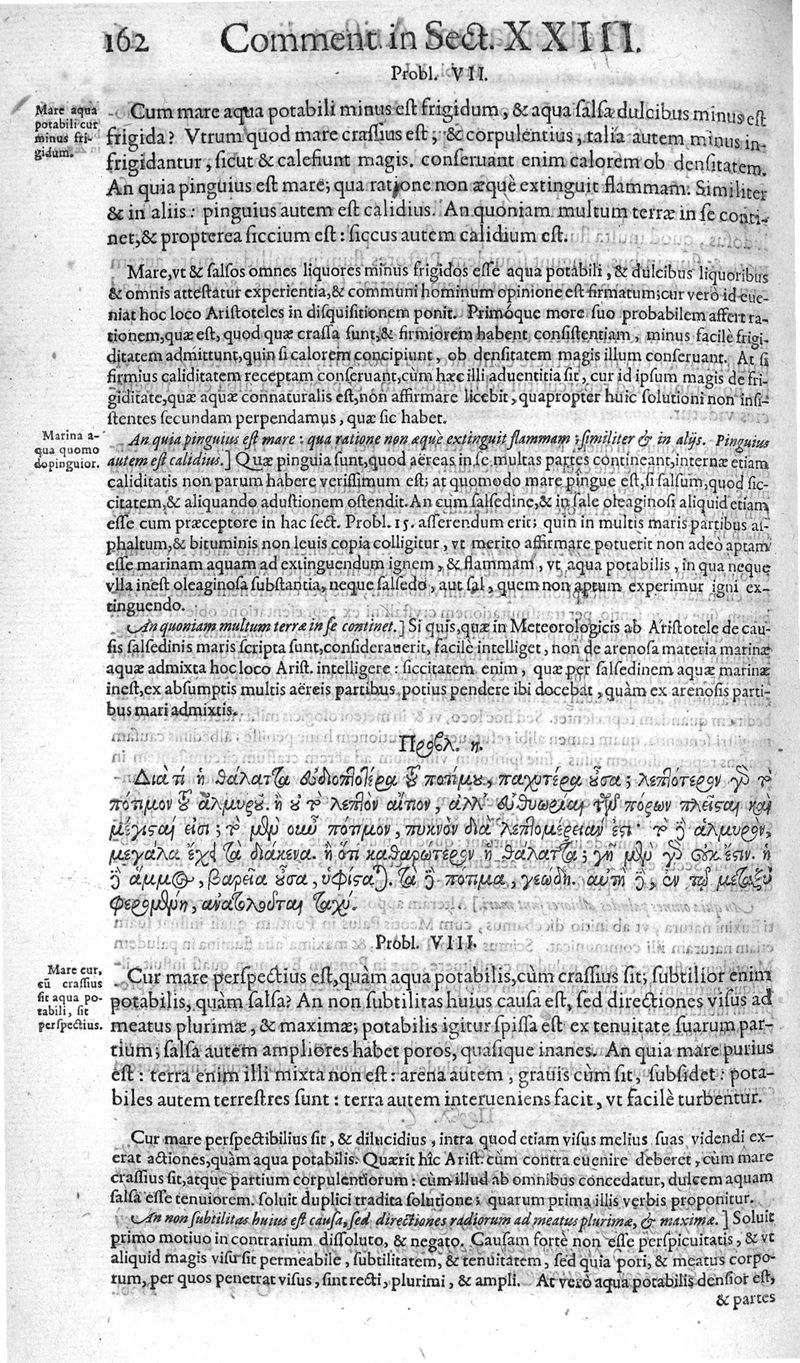 162 Comment. in Sect. XXIII.
Probl. VII.
Mare aqua
potabili cur
minus fri-
gidum.
Cum mare aqua potabili minus est frigidum, & aqua salsa dulcibus minus est
frigida? Vtrum quod mare crassius est, & corpulentius, talia autem minus in-
frigidantur, sicut & calefiunt magis. conseruant enim calorem ob densitatem.
An quia pinguius est mare; qua ratione non æquè extinguit flammam. Similiter
& in aliis: pinguius autem est calidius. An quoniam multum terræ in se conti-
net, & propterea siccium est: siccus autem calidium est.
Mare, vt & salsos omnes liquores minus frigidos esse aqua potabili, & dulcibus liquoribus
& omnis attestatur experientia, & communi hominum opinione est firmatum; cur verò id eue-
niat hoc loco Aristoteles in disquisitionem ponit. Primóque more suo probabilem affert ra-
tionem, quæ est, quod quæ crassa sunt, & firmiorem habent consistentiam, minus facilè frigi-
ditatem admittunt, quin si calorem concipiunt, ob densitatem magis illum conseruant. At si
firmius caliditatem receptam conseruant, cùm hæc illi aduentitia sit, cur id ipsum magis de fri-
giditate, quæ aquæ connaturalis est, non affirmare licebit, quapropter huic solutioni non insi-
stentes secundam perpendamus, quæ sic habet.
Marina a-
qua quomo
do pinguior.
An quia pinguius est mare: qua ratione non æque extinguit flammam; similiter & in alijs. Pinguius
autem est calidius.] Quæ pinguia sunt, quod aëreas in se multas partes contineant, internæ etiam
caliditatis non parum habere verissimum est; at quomodo mare pingue est, si salsum, quod sic-
citatem, & aliquando adustionem ostendit. An cum salsedine, & in sale oleaginosi aliquid etiam
esse cum præceptore in hac sect. Probl. 15. asserendum erit; quin in multis maris partibus as-
phaltum, & bituminis non leuis copia colligitur, vt merito affirmare potuerit non adeò aptam
esse marinam aquam ad extinguendum ignem, & flammam, vt aqua potabilis, in qua neque
vlla inest oleaginosa substantia, neque salsedo, aut sal, quem non aptum experimur igni ex-
tinguendo.
An quoniam multum terræ in se continet.] Si quis, quæ in Meteorologicis ab Aristotele de cau-
sis salsedinis maris scripta sunt, considerauerit, facilè intelliget, non de arenosa materia marinæ
aquæ admixta hoc loco Arist. intelligere: siccitatem enim, quæ per salsedinem aquæ marinæ
inest, ex absumptis multis aëreis partibus potius pendere ibi docebat, quàm ex arenosis parti-
bus mari admixtis.
Προβλ. η.
Διὰ τί ἡ θάλαττα εὐδιοπτοτέρα τοῦ ποτίμου, παχυτέρα οὖσα; λεπτότερον γὰρ τὸ
πότιμον τοῦ ἁλμυροῦ. ἢ οὐ τὸ λεπτὸν αἴτιον, ἀλλ' εὐθυωρίαι τῶν πόρων πλεῖσται καὶ
μέγισταί εἰσι; τὸ μὲν οὖν πότιμον, πυκνὸν διὰ λεπτομέρειάν ἐστι· τὸ δὲ ἁλμυρὸν,
μεγάλα ἔχει τὰ διάκενα. ἢ ὅτι καθαρώτερον ἡ θάλαττα; γῆ μὲν γὰρ οὐκ ἔστιν. ἡ
δὲ ἄμμος, βαρεῖα οὖσα, ὑφίσταται. τὰ δὲ πότιμα, γεώδη. αὐτὴ δὲ, ἐν τῷ μεταξὺ
φερομένη, ἀναθολοῦται ταχύ.
Probl. VIII.
Mare cur,
cū crassius
sit aqua po-
tabili, sit
perspectius.
Cur mare perspectius est, quàm aqua potabilis, cùm crassius sit; subtilior enim
potabilis, quàm salsa? An non subtilitas huius causa est, sed directiones visus ad
meatus plurimæ, & maximæ; potabilis igitur spissa est ex tenuitate suarum par-
tium; salsa autem ampliores habet poros, quasique inanes. An quia mare purius
est: terra enim illi mixta non est: arena autem, grauis cùm sit, subsidet: pota-
biles autem terrestres sunt: terra autem interueniens facit, vt facilè turbentur.
Cur mare perspectibilius sit, & dilucidius, intra quod etiam visus melius suas videndi ex-
erat actiones, quàm aqua potabilis. Quærit hîc Arist. cùm contra euenire deberet, cùm mare
crassius sit, atque partium corpulentiorum: cùm illud ab omnibus concedatur, dulcem aquam
salsa esse tenuiorem. soluit duplici tradita solutione; quarum prima illis verbis proponitur.
An non subtilitas huius est causa, sed directiones radiorum ad meatus plurimæ, & maximæ.] Soluit
primo motiuo in contrarium dissoluto, & negato. Causam fortè non esse perspicuitatis, & vt
aliquid magis visui sit permeabile, subtilitatem, & tenuitatem, sed quia pori, & meatus corpo-
rum, per quos penetrat visus, sint recti, plurimi, & ampli. At verò aqua potabilis densior est,
& partes